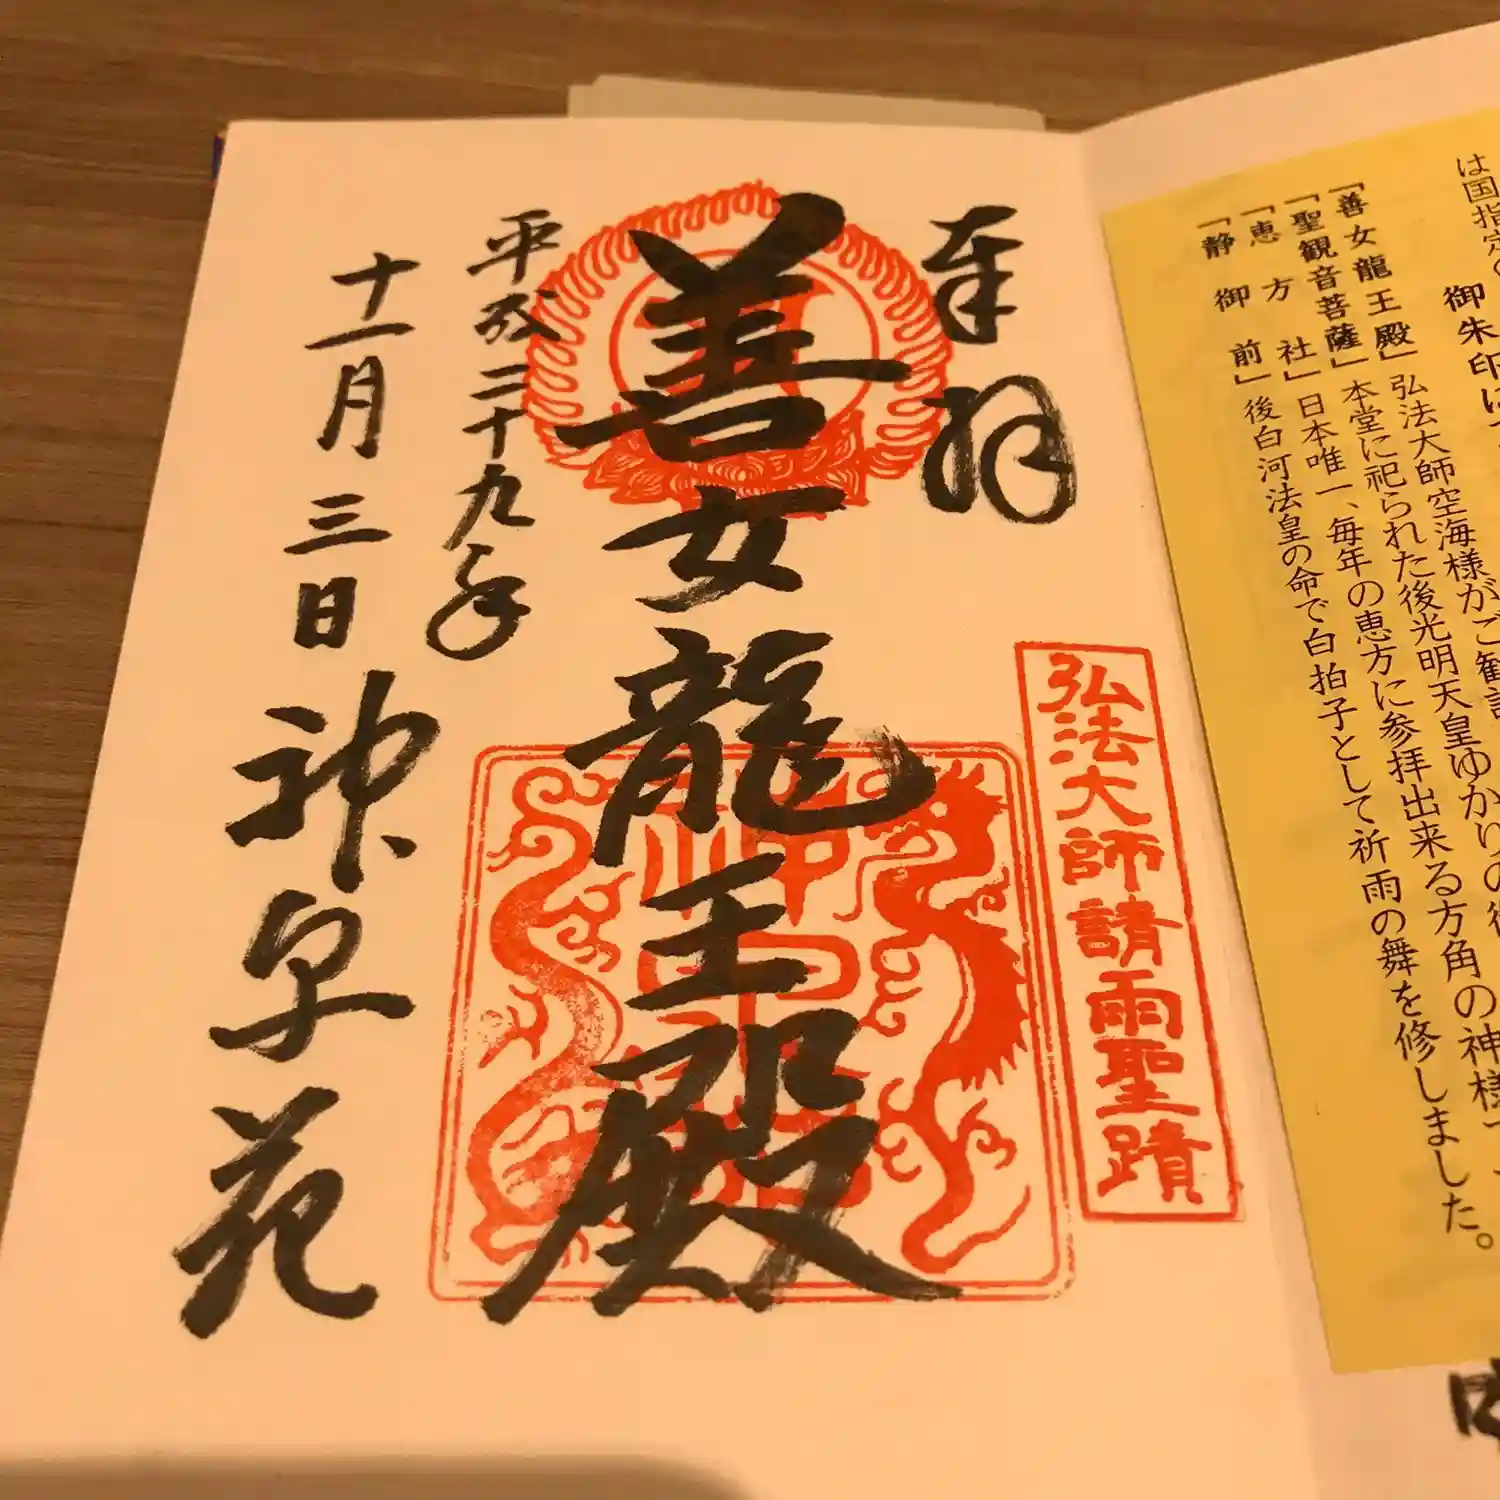 は国指定
御朱印に
「善女龍王殿」弘法大師空海様がご勧請
「聖観音菩薩」本堂に祀られた後光明天皇ゆかりの
「恵方社」日本唯一、毎年の恵方に参拝出来る方角の神様
「静御前」後白河法皇の命で白拍子として祈雨の舞を修しました。
奉拝
弘法大師請雨聖蹟
善女龍王殿
平成二十九年
十一月三日
神泉苑